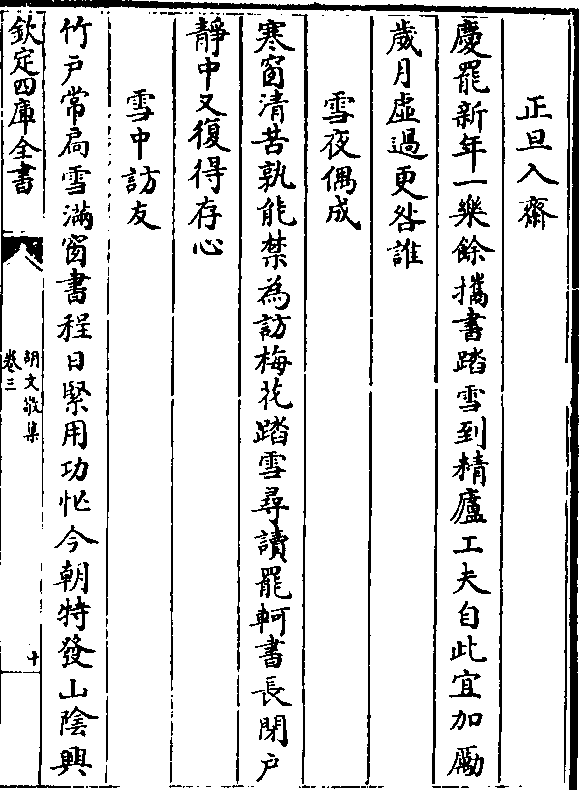 正旦入齋
慶罷新年一樂餘攜書踏雪到精廬工夫自此宜加勵
歲月虛過更咎誰
雪夜偶成
寒窗清苦孰能禁為訪梅花踏雪尋讀罷軻書長閉户
靜中又復得存心
雪中訪友
竹戸常扃雪滿窗書程日緊用功忙今朝特發山陰興
欽定四庫全書
胡文敬集
卷三
十